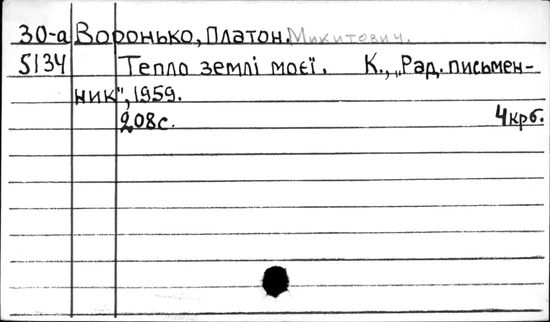 30-а Воронько, Платон. Микитович.
5134 Тепло землі моєї. К., „Рад. письмен-
ник", 1959.
208с. 4крб.